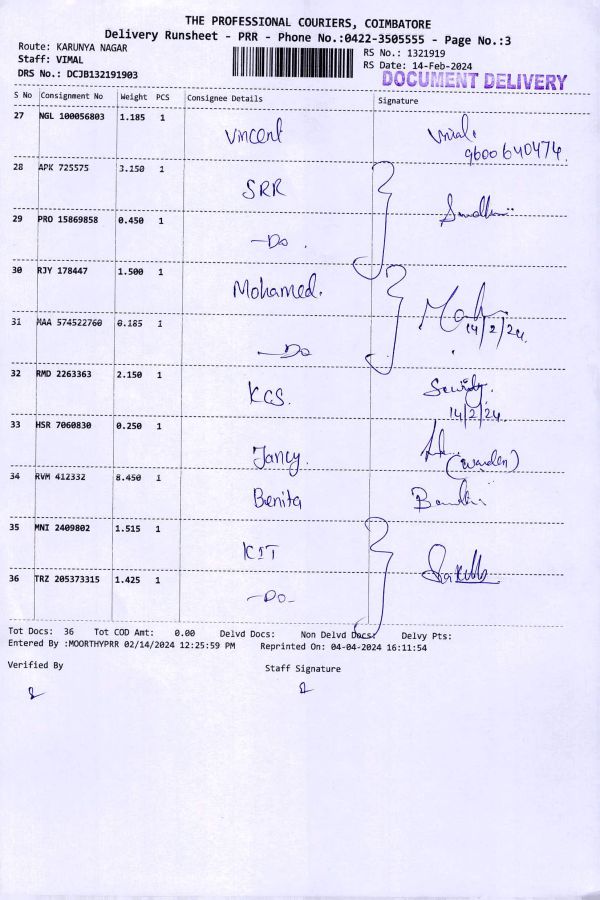 THE PROFESSIONAL COURIERS, COIMBATORE
Delivery Runsheet - PRR - Phone No.:0422-3505555 - Page No.:3
Route: KARUNYA NAGAR
Staff: VIMAL
DRS No.: DCJB132191903
RS No.: 1321919
RS Date: 14-Feb-2024
DOCUMENT DELIVERY
S No Consignment No Weight PCS Consignee Details Signature
27 NGL 100056803 1.185 1 Vincent
9600640474.
28 APK 725575 3.150 1 SRR
29 PRO 15869858 0.450 1 —Do.
30 RJY 178447 1.500 1 Mohamed.
14/2/24.
31 MAA 574522760 0.185 1 —Do
32 RMD 2263363 2.150 1 KCS.
14/2/24.
33 HSR 7060830 0.250 1 Jancy. (warden)
34 RVM 412332 8.450 1 Benita
35 MNI 2409802 1.515 1 KIT
36 TRZ 205373315 1.425 1 —Do-
Tot Docs: 36 Tot COD Amt: 0.00 Delvd Docs: Non Delvd Docs: Delvy Pts:
Entered By :MOORTHYPRR 02/14/2024 12:25:59 PM Reprinted On: 04-04-2024 16:11:54
Verified By Staff Signature